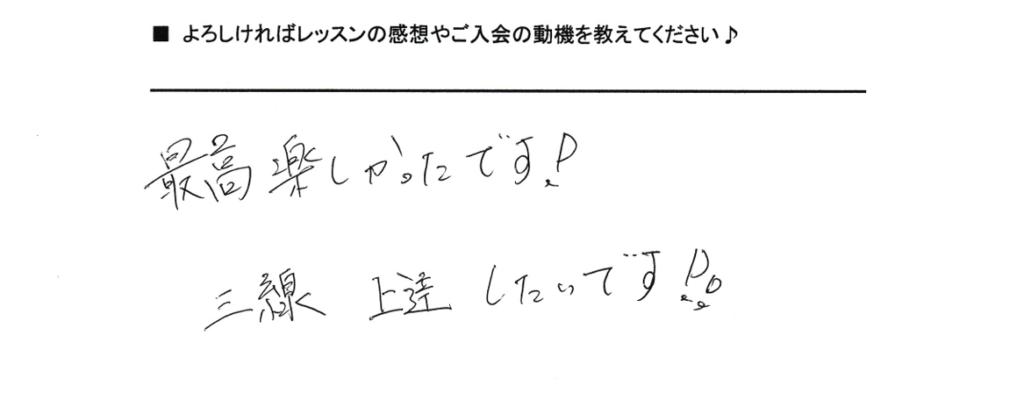 ■ よろしければレッスンの感想やご入会の動機を教えてください♪
最高楽しかったです!
三線 上達 したいです!!